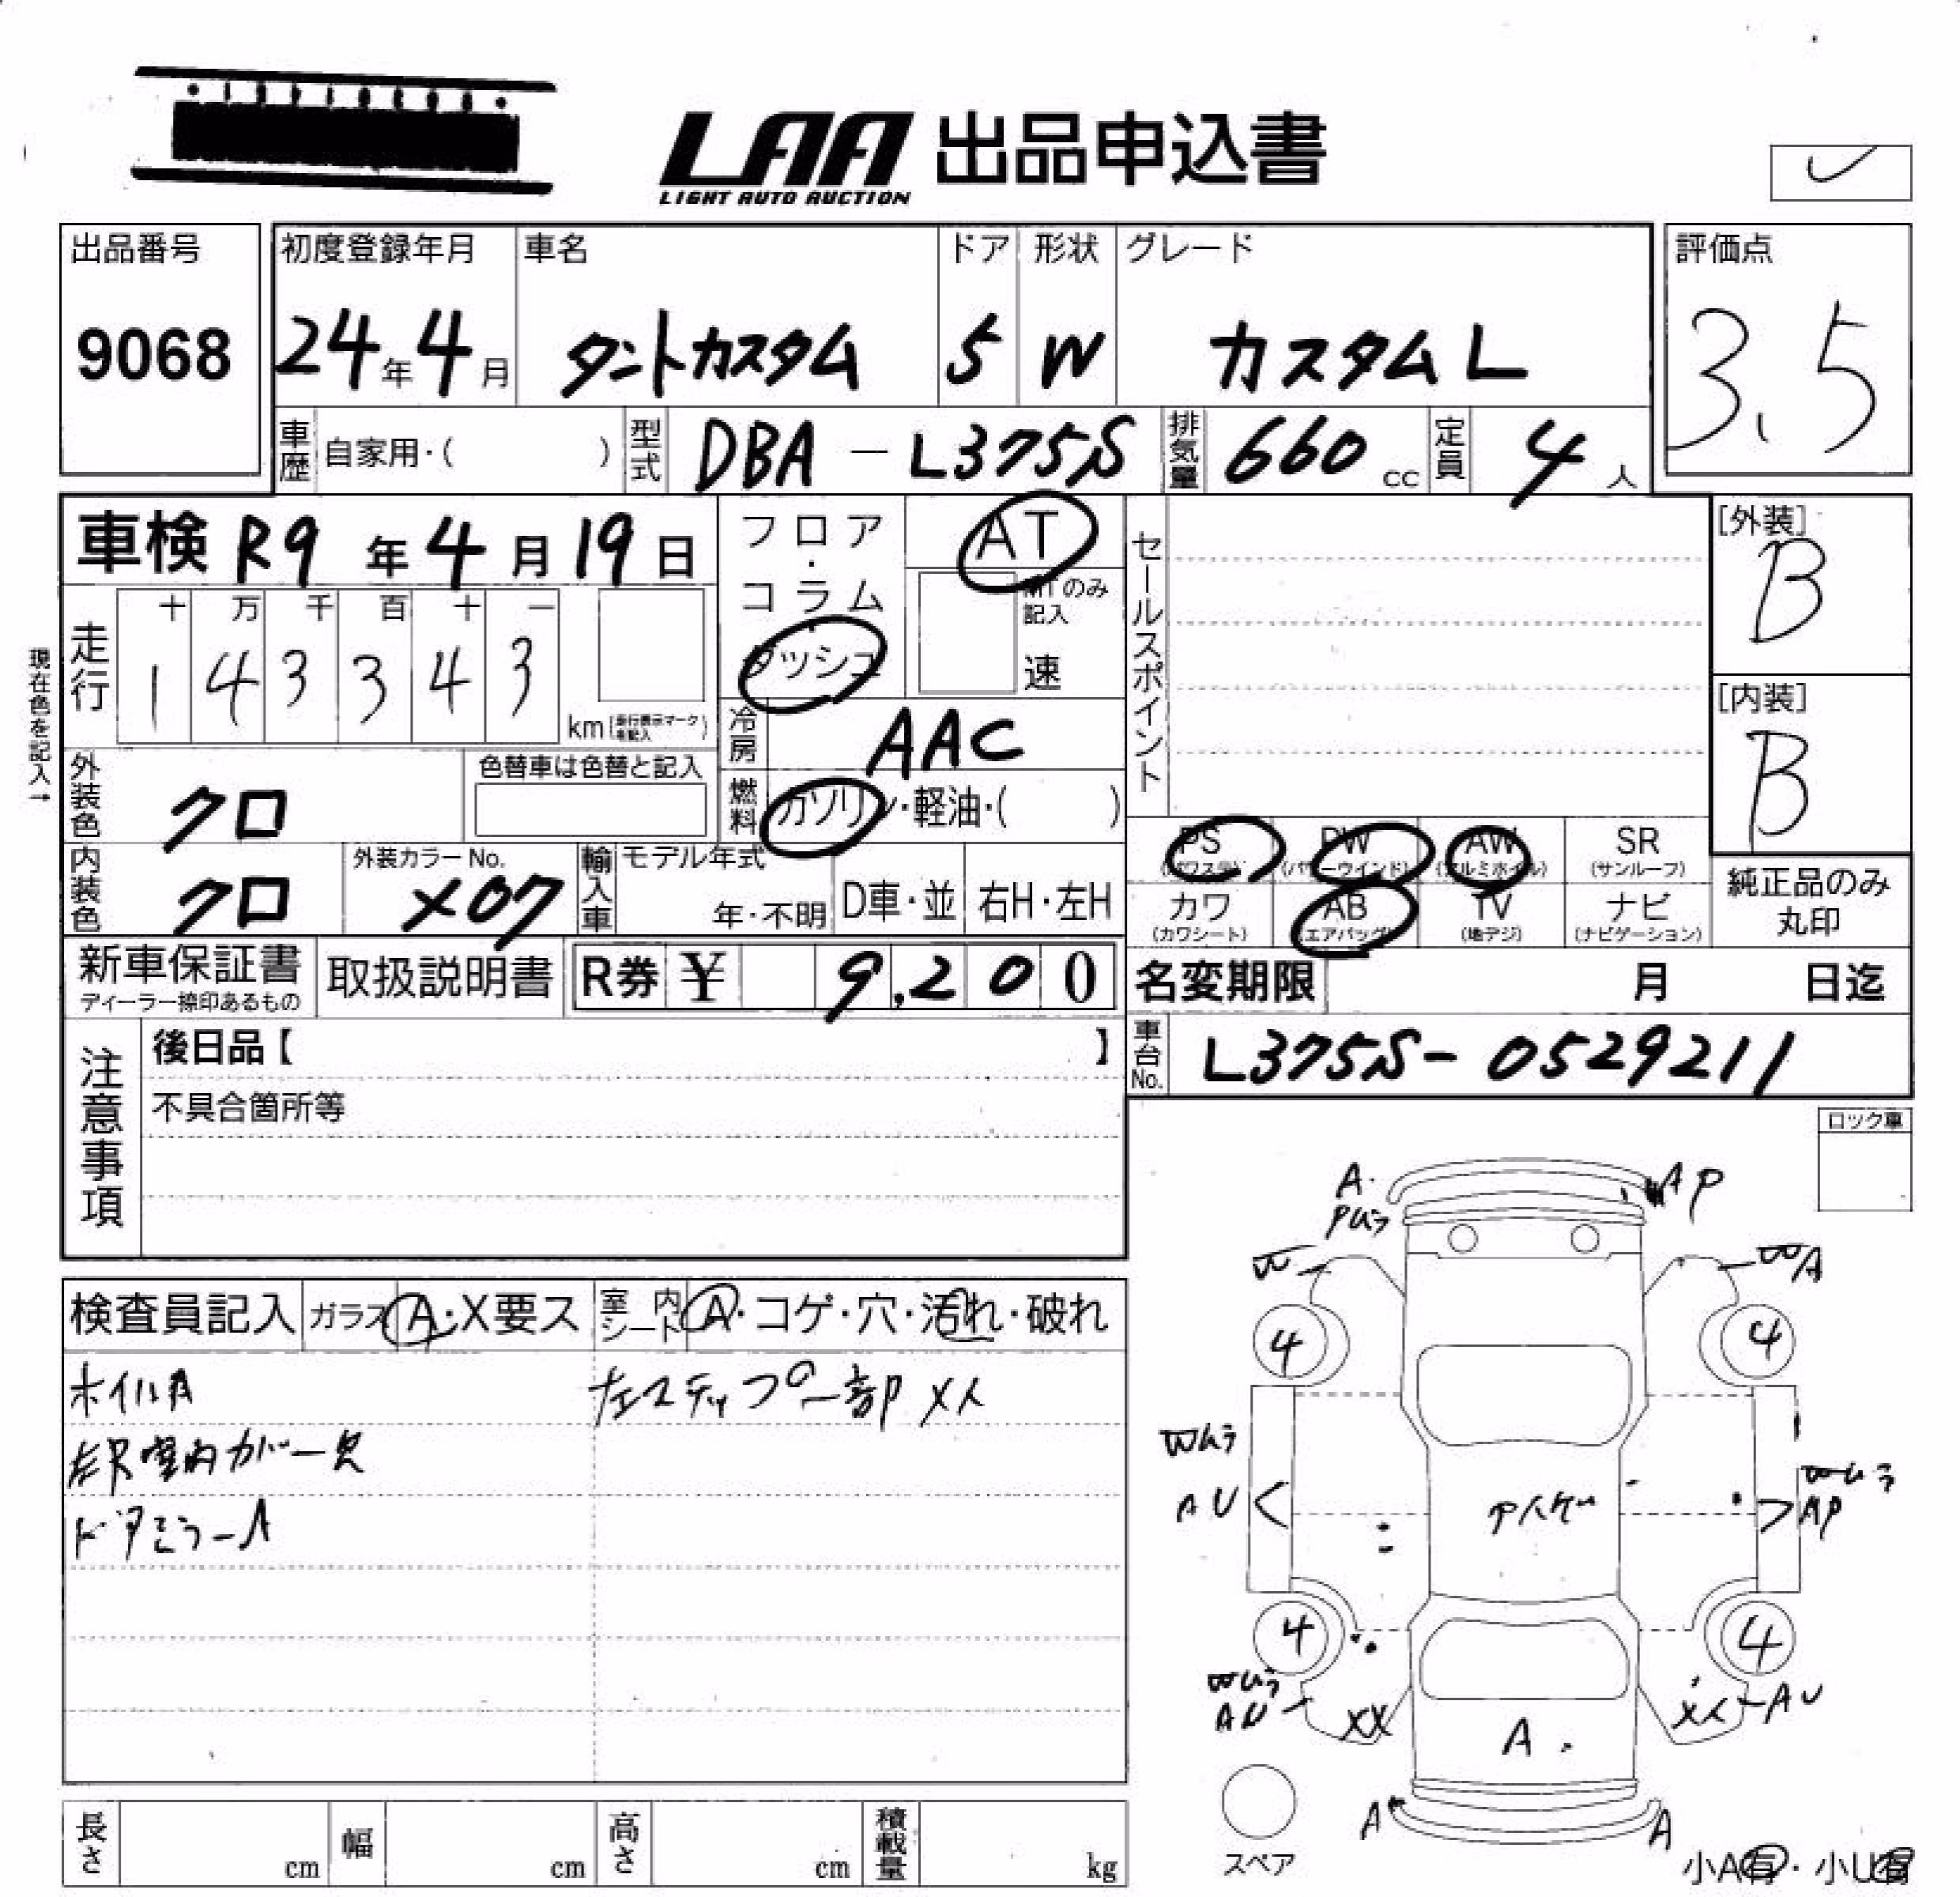 LAA 出品申込書
LIGHT AUTO AUCTION
出品番号
9068
初度登録年月
24年4月
車名
タントカスタム
ドア
5
形状
W
グレード
カスタムL
評価点
3.5
車歴 自家用・( )
型式 DBA-L375S
排気量 660 cc
定員 4人
車検 R9年4月19日
現在色を記入→
走行
十 万 千 百 十 一
1 4 3 3 4 3
km(走行表示マーク を記入)
フロア・コラム
ダッシュ
AT
MTのみ記入
速
冷房 AAC
燃料 ガソリン・軽油・( )
セールスポイント
[外装]
B
[内装]
B
外装色 クロ
色替車は色替と記入
内装色 クロ
外装カラーNo.
X07
輸入車 モデル年式
年・不明
D車・並
右H・左H
PS (パワステ)
PW (パワーウインド)
AW (アルミホイル)
SR (サンルーフ)
カワ (カワシート)
AB (エアバッグ)
TV (地デジ)
ナビ (ナビゲーション)
純正品のみ
丸印
新車保証書
ディーラー捺印あるもの
取扱説明書
R券 ¥ 9,200
名変期限 月 日迄
車台No. L375S-0529211
注意事項
後日品【 】
不具合箇所等
ロック車
検査員記入
ガラス A・X要ス
室内シート A・コゲ・穴・汚れ・破れ
ホイルA
左ステップの一部 XX
左R室内カバー欠
ドアミラーA
A
Pムラ
AP
W
WA
4
4
Wムラ
AU
Wムラ
AP
4
4
Wムラ
AU
XX
XX
AU
A
A
A
スペア
小A有・小U有
長さ cm
幅 cm
高さ cm
積載量 kg